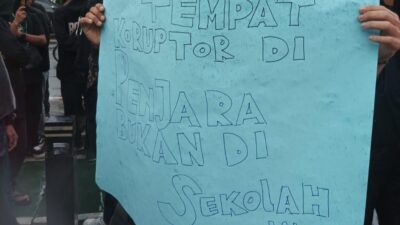 TEMPAT
KORUPTOR DI
PENJARA
BUKAN DI
SEKOLAH